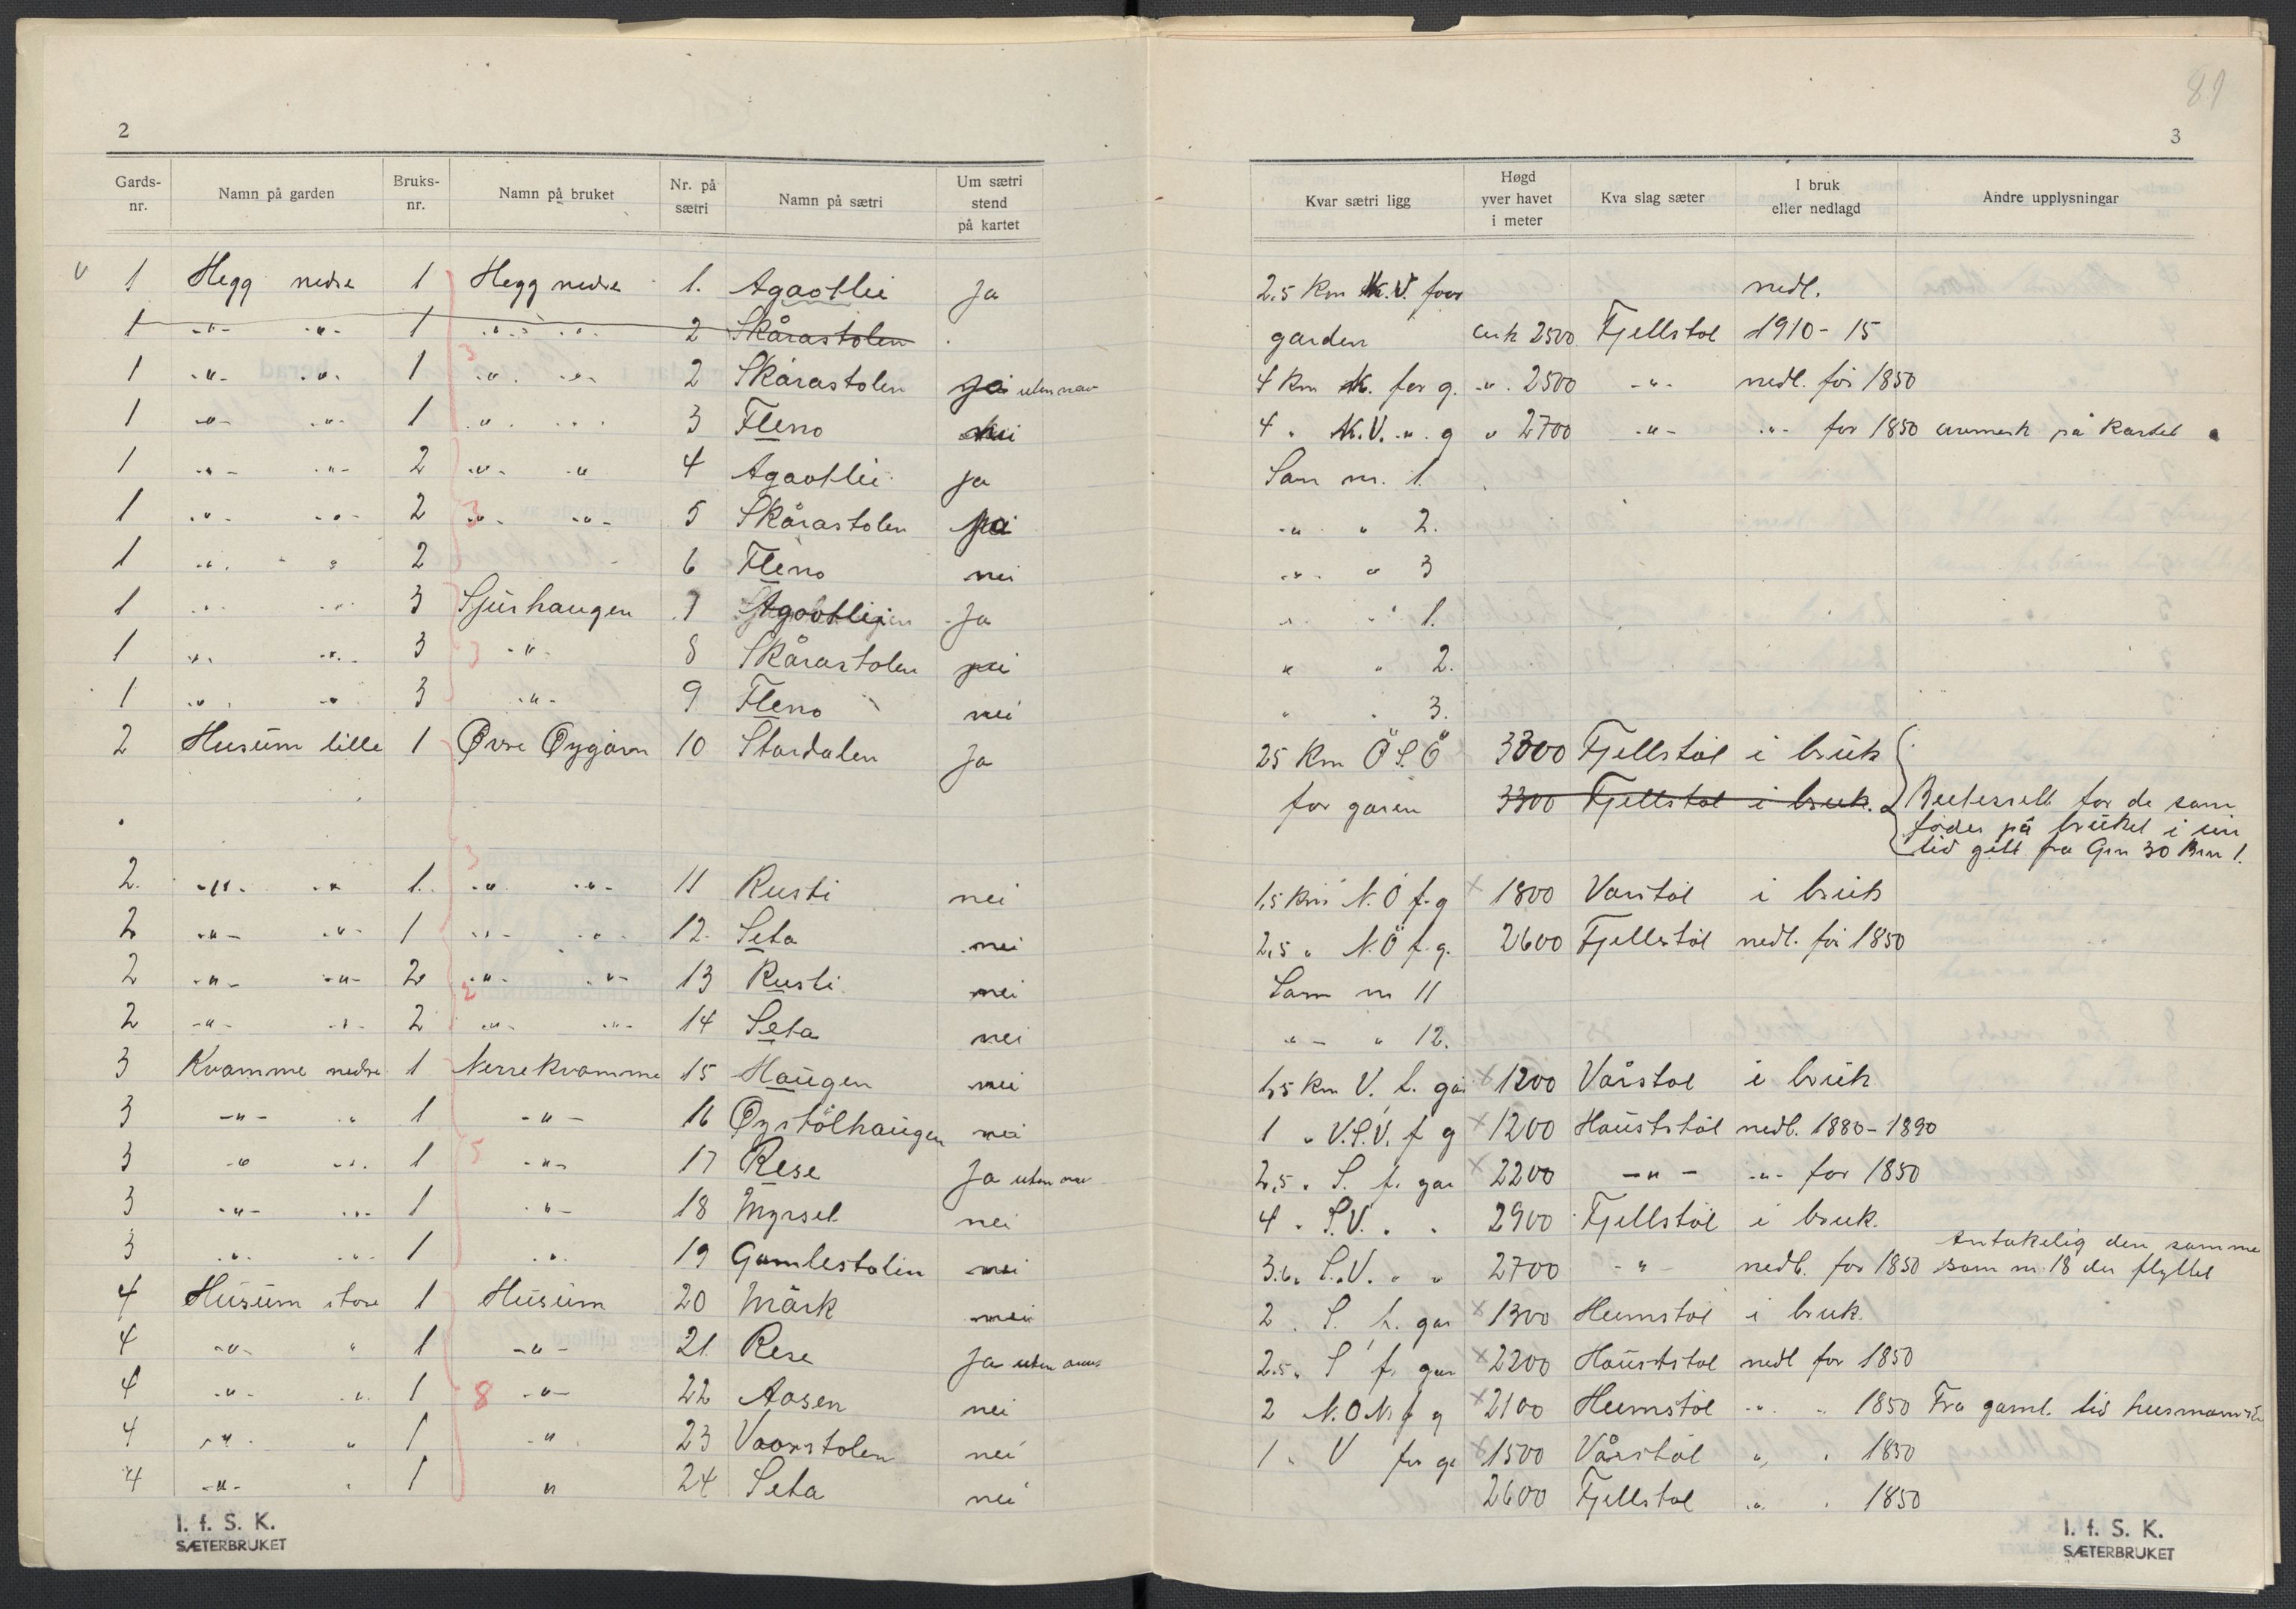 2
Gards-nr. Namn på garden Bruks-nr. Namn på bruket Nr. på sætri Namn på sætri Um sætri stend på kartet
v 1 Hegg nedre 1 Hegg nedre 1. Agaotlie Ja
1 -"- -"- 1 -"- -"- 2 Skårastolen
1 -"- -"- 1 -"- -"- 2 Skårastolen ja uten navn
1 -"- -"- 1 -"- 3 Fleno nei
1 -"- -"- 2 -"- -"- 4 Agaotlie ja
1 -"- -"- 2 -"- -"- 5 Skårastolen ja
1 -"- " 2 6 Fleno nei
1 -"- -"- 3 Sjurhaugen 7 Agaotlie Ja
1 -"- -"- 3 -"- 8 Skårastolen
1 -"- -"- 3 -"- 9 Fleno nei
2 Husum lille 1 Øvre Øygarn 10 Stardalen Ja
2. -"- -"- 1. -"- -"- 11 Rusti nei
2 -"- -"- 1 -"- -"- 12. Seta nei
2 -"- -"- 2 -"- -"- 13 Rusti nei
2 -"- -"- 2 -"- -"- 14 Seta nei
3 Kvamme nedre 1 Nerre Kvamme 15 Haugen nei
3 -"- " 1 -"- 16 Øystölhaugen nei
3 -"- -"- 1 -"- 17 Rese Ja uten nav
3 -"- -"- 1 -"- 18 Myrsel nei
3 -"- -"- 1 -"- 19 Gamlestolin nei
4 Husum store 1 Husum 20 Märk nei
4 -"- " 1 -"- 21 Rese Ja uten navn
4 -"- -"- 1 -"- 22 Aasen nei
4 -"- " 1 -"- 23 Vaorstolen nei
4 -"- " 1 " 24 Seta nei
3
3
3
3
2
5
8
I. f. S. K.
SÆTERBRUKET
81
3
Kvar sætri ligg Høgd yver havet i meter Kva slag sæter I bruk eller nedlagd Andre upplysningar
2,5 Km N.V. for nedl.
garden cirk 2500 Fjellstol 1910-15
4 Km N. for g. -"- 2500 -"- nedl. för 1850
4 " N.V. -"- g " 2700 -"- -"- for 1850 avmerk på Kartet
Sam nr. 1.
-"- " 2.
-"- " 3
-"- " 1.
" " 2.
" " 3.
25 Km Ö S.Ö 3300 Fjellstöl i bruk
for garen 3300 Fjellstol i bruk. Beitesrett for de som
födes på bruket i sin
tid gitt fra Grn 30 Brn 1.
1,5 Km N.Ö f.g × 1800 Varstöl i bruk
2,5 " N.Ö f.g. 2600 Fjellstöl nedl. för 1850
Sam nr 11
-"- " 12.
1,5 Km V. f. går × 1200 Vårstol i bruk
1 " V.S.V. f g × 1200 Hauststöl nedl. 1880-1890
2,5 " S. f. gar × 2200 -"- -"- for 1850
4 " S.V. " " 2900 Fjellstöl i bruk.
Antakelig den samme
3.6 " S.V. " " 2700 -"- nedl. for 1850 som nr 18 der flyttet
2 " S. f. gar × 1300 Heimstöl i bruk.
2.5 " S f. gar × 2200 Hauststol nedl for 1850
2 N.O.N. f g × 2100 Heimstöl -"- " 1850 Fra gaml. tid husmanns
1 " V for ga × 1500 Vårstöl " " 1850
2600 Fjellstol " " 1850
I. f. S. K.
SÆTERBRUKET